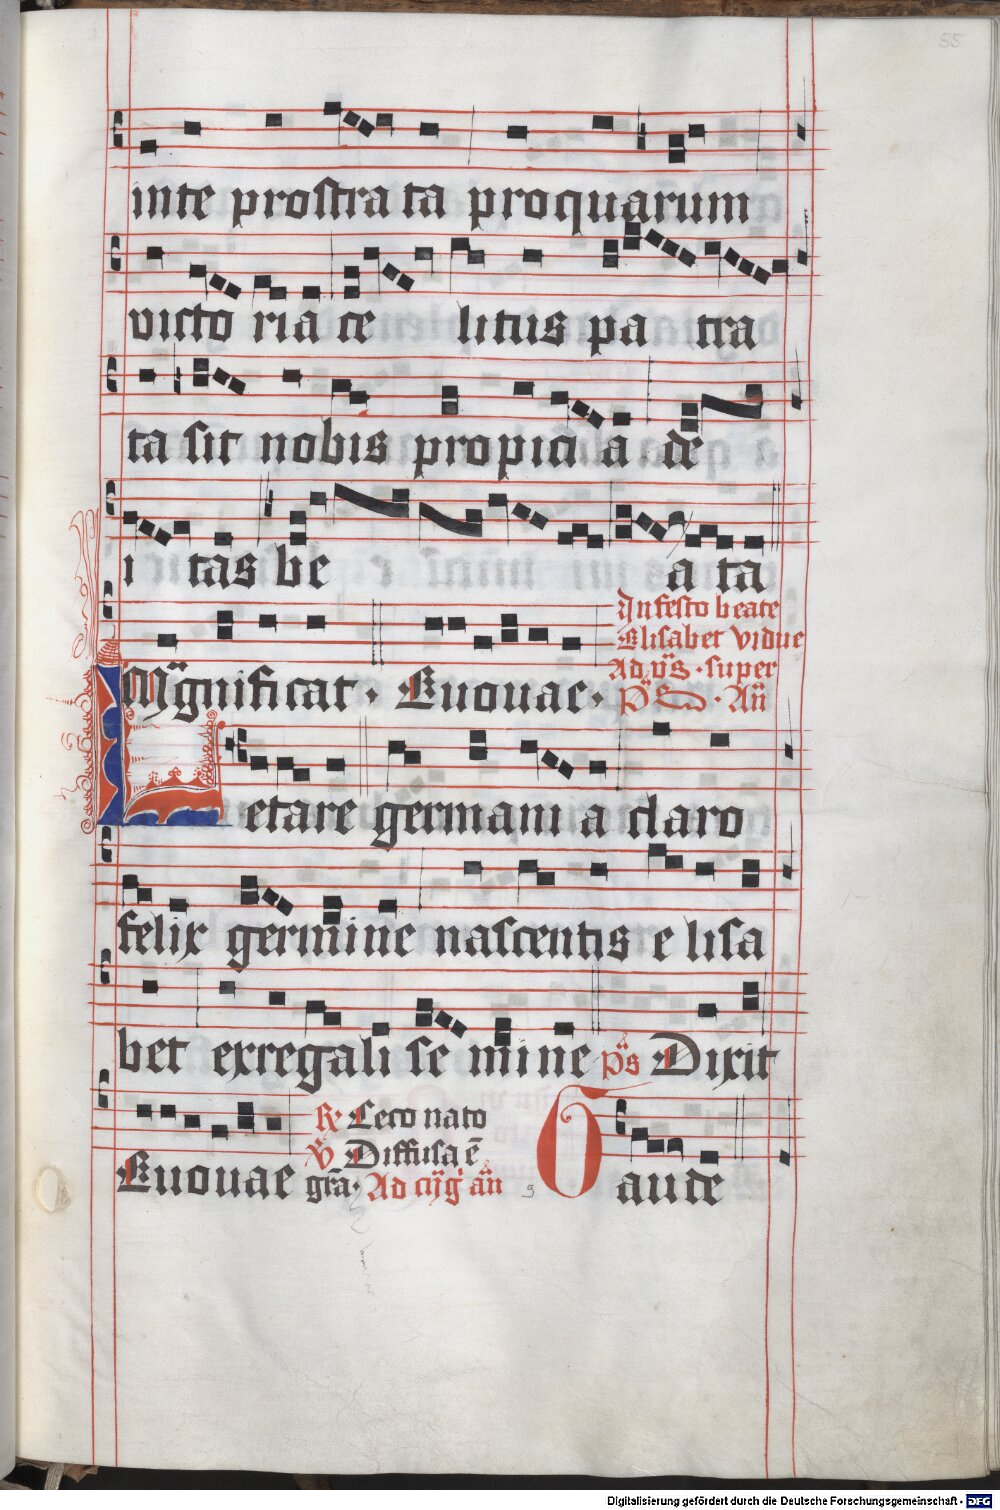 55
inte prostrata pro quarum
victo ria ce litus pa tra
ta sit nobis propicia de
i tas be a ta
In festo beate
Elisabet vidue
Magnificat. Euouae. Ad vs. super
ps An
Letare germania claro
felix germine nascentis elisa
bet ex regali semine ps Dixit
R. Leto nato
V Diffusa ē
Euouae gra. Ad an Gaude
Digitalisierung gefördert durch die Deutsche Forschungsgemeinschaft - DFG